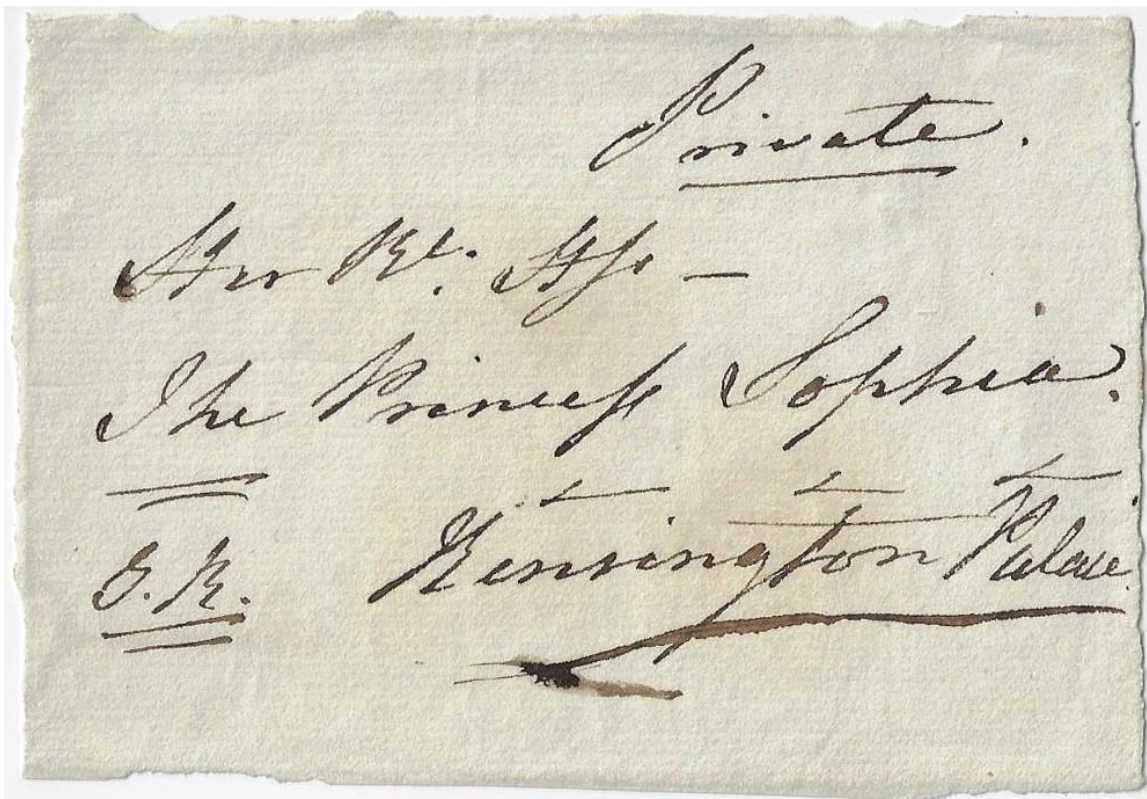 Private.
Her Rl. Hss —
The Princess Sophia.
G. R. Kensington Palace.